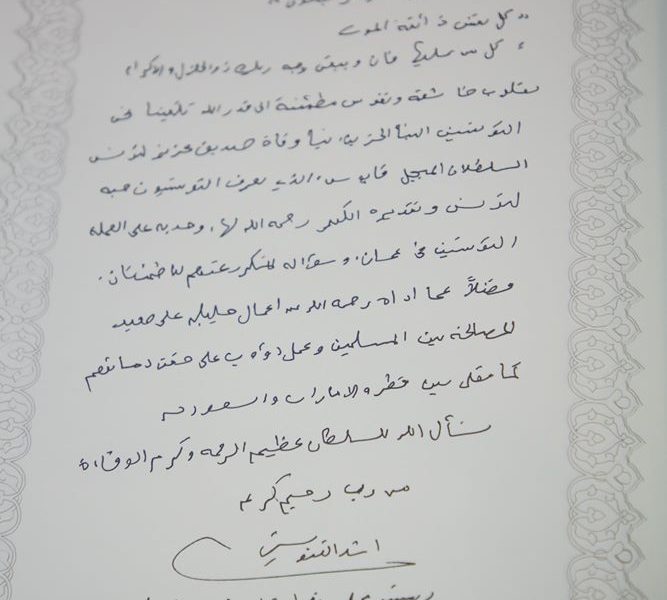 "كل نفس ذائقة الموت
" كل من عليها فان ويبقى وجه ربك ذو الجلال والإكرام
بقلوب خاشعة ونفوس مطمئنة الى قدر الله تلقينا نحن
التونسيين النبأ الحزين نبأ وفاة صديق عزيز لتونس
السلطان المبجل قابوس، الذي يعرف التونسيون حبه
لتونس وتقديره الكبير رحمه الله لها، وحدبه على العملة
التونسيين في عمان، وسؤاله المتكرر عنهم للاطمئنان.
فضلاً عما اداه رحمه الله من اعمال جليلة على صعيد
المصالحة بين المسلمين وعمل دؤوب على حقن دمائهم
كما فعل بين قطر والامارات والسعودية
نسأل الله للسلطان عظيم الرحمة وكرم الوفادة
من رب رحيم كريم
راشد الغنوشي
رئيس مجلس نواب